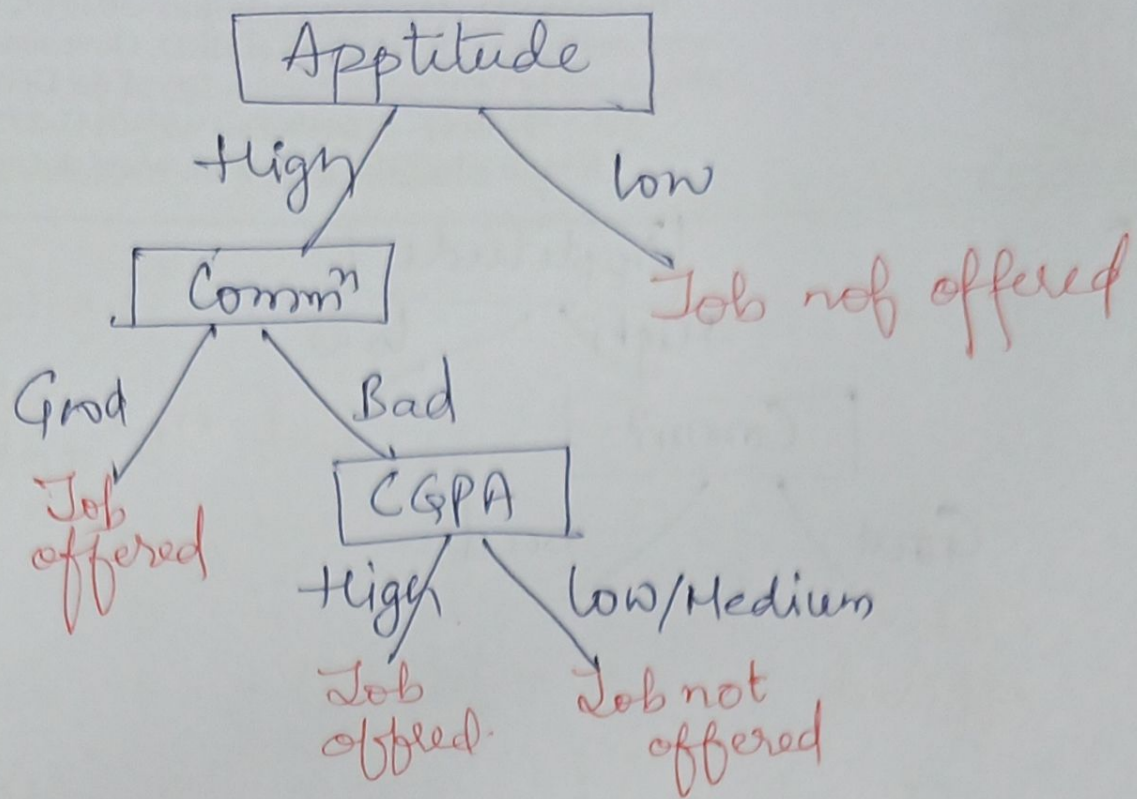 Apptitude
High
low
Commⁿ
Job not offered
Good
Bad
Job
offered
CGPA
High
low/Medium
Job
offred.
Job not
offered